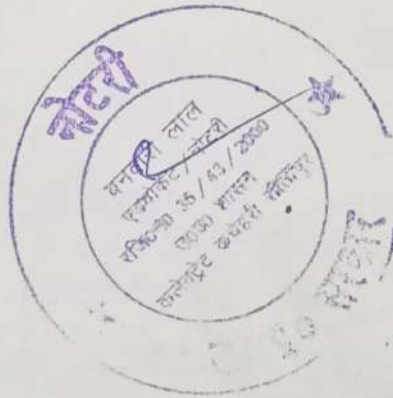 नोटरी
बनवारी लाल
एडवोकेट/नोटरी
रजि०न० 35/43/2000
उ०प्र० शासन
कलेक्ट्रेट कचेहरी सीतापुर
सरकार